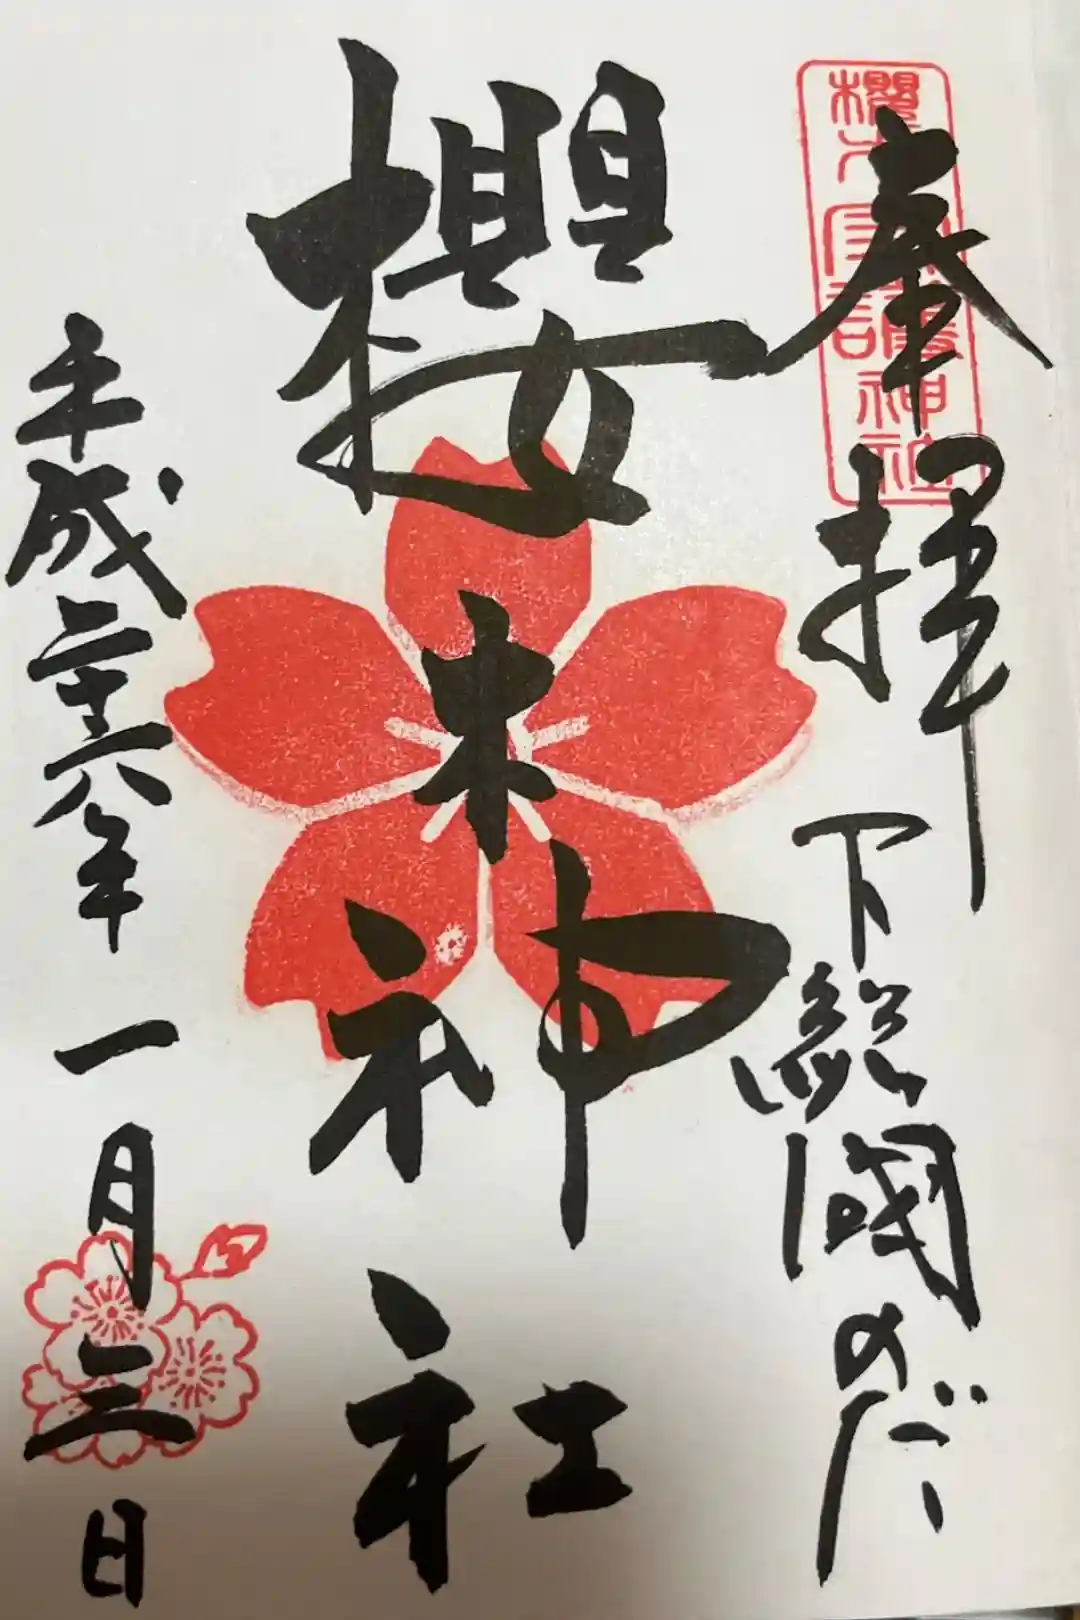 奉拝
下総國のだ
櫻木神社
平成二十六年一月三日
神社